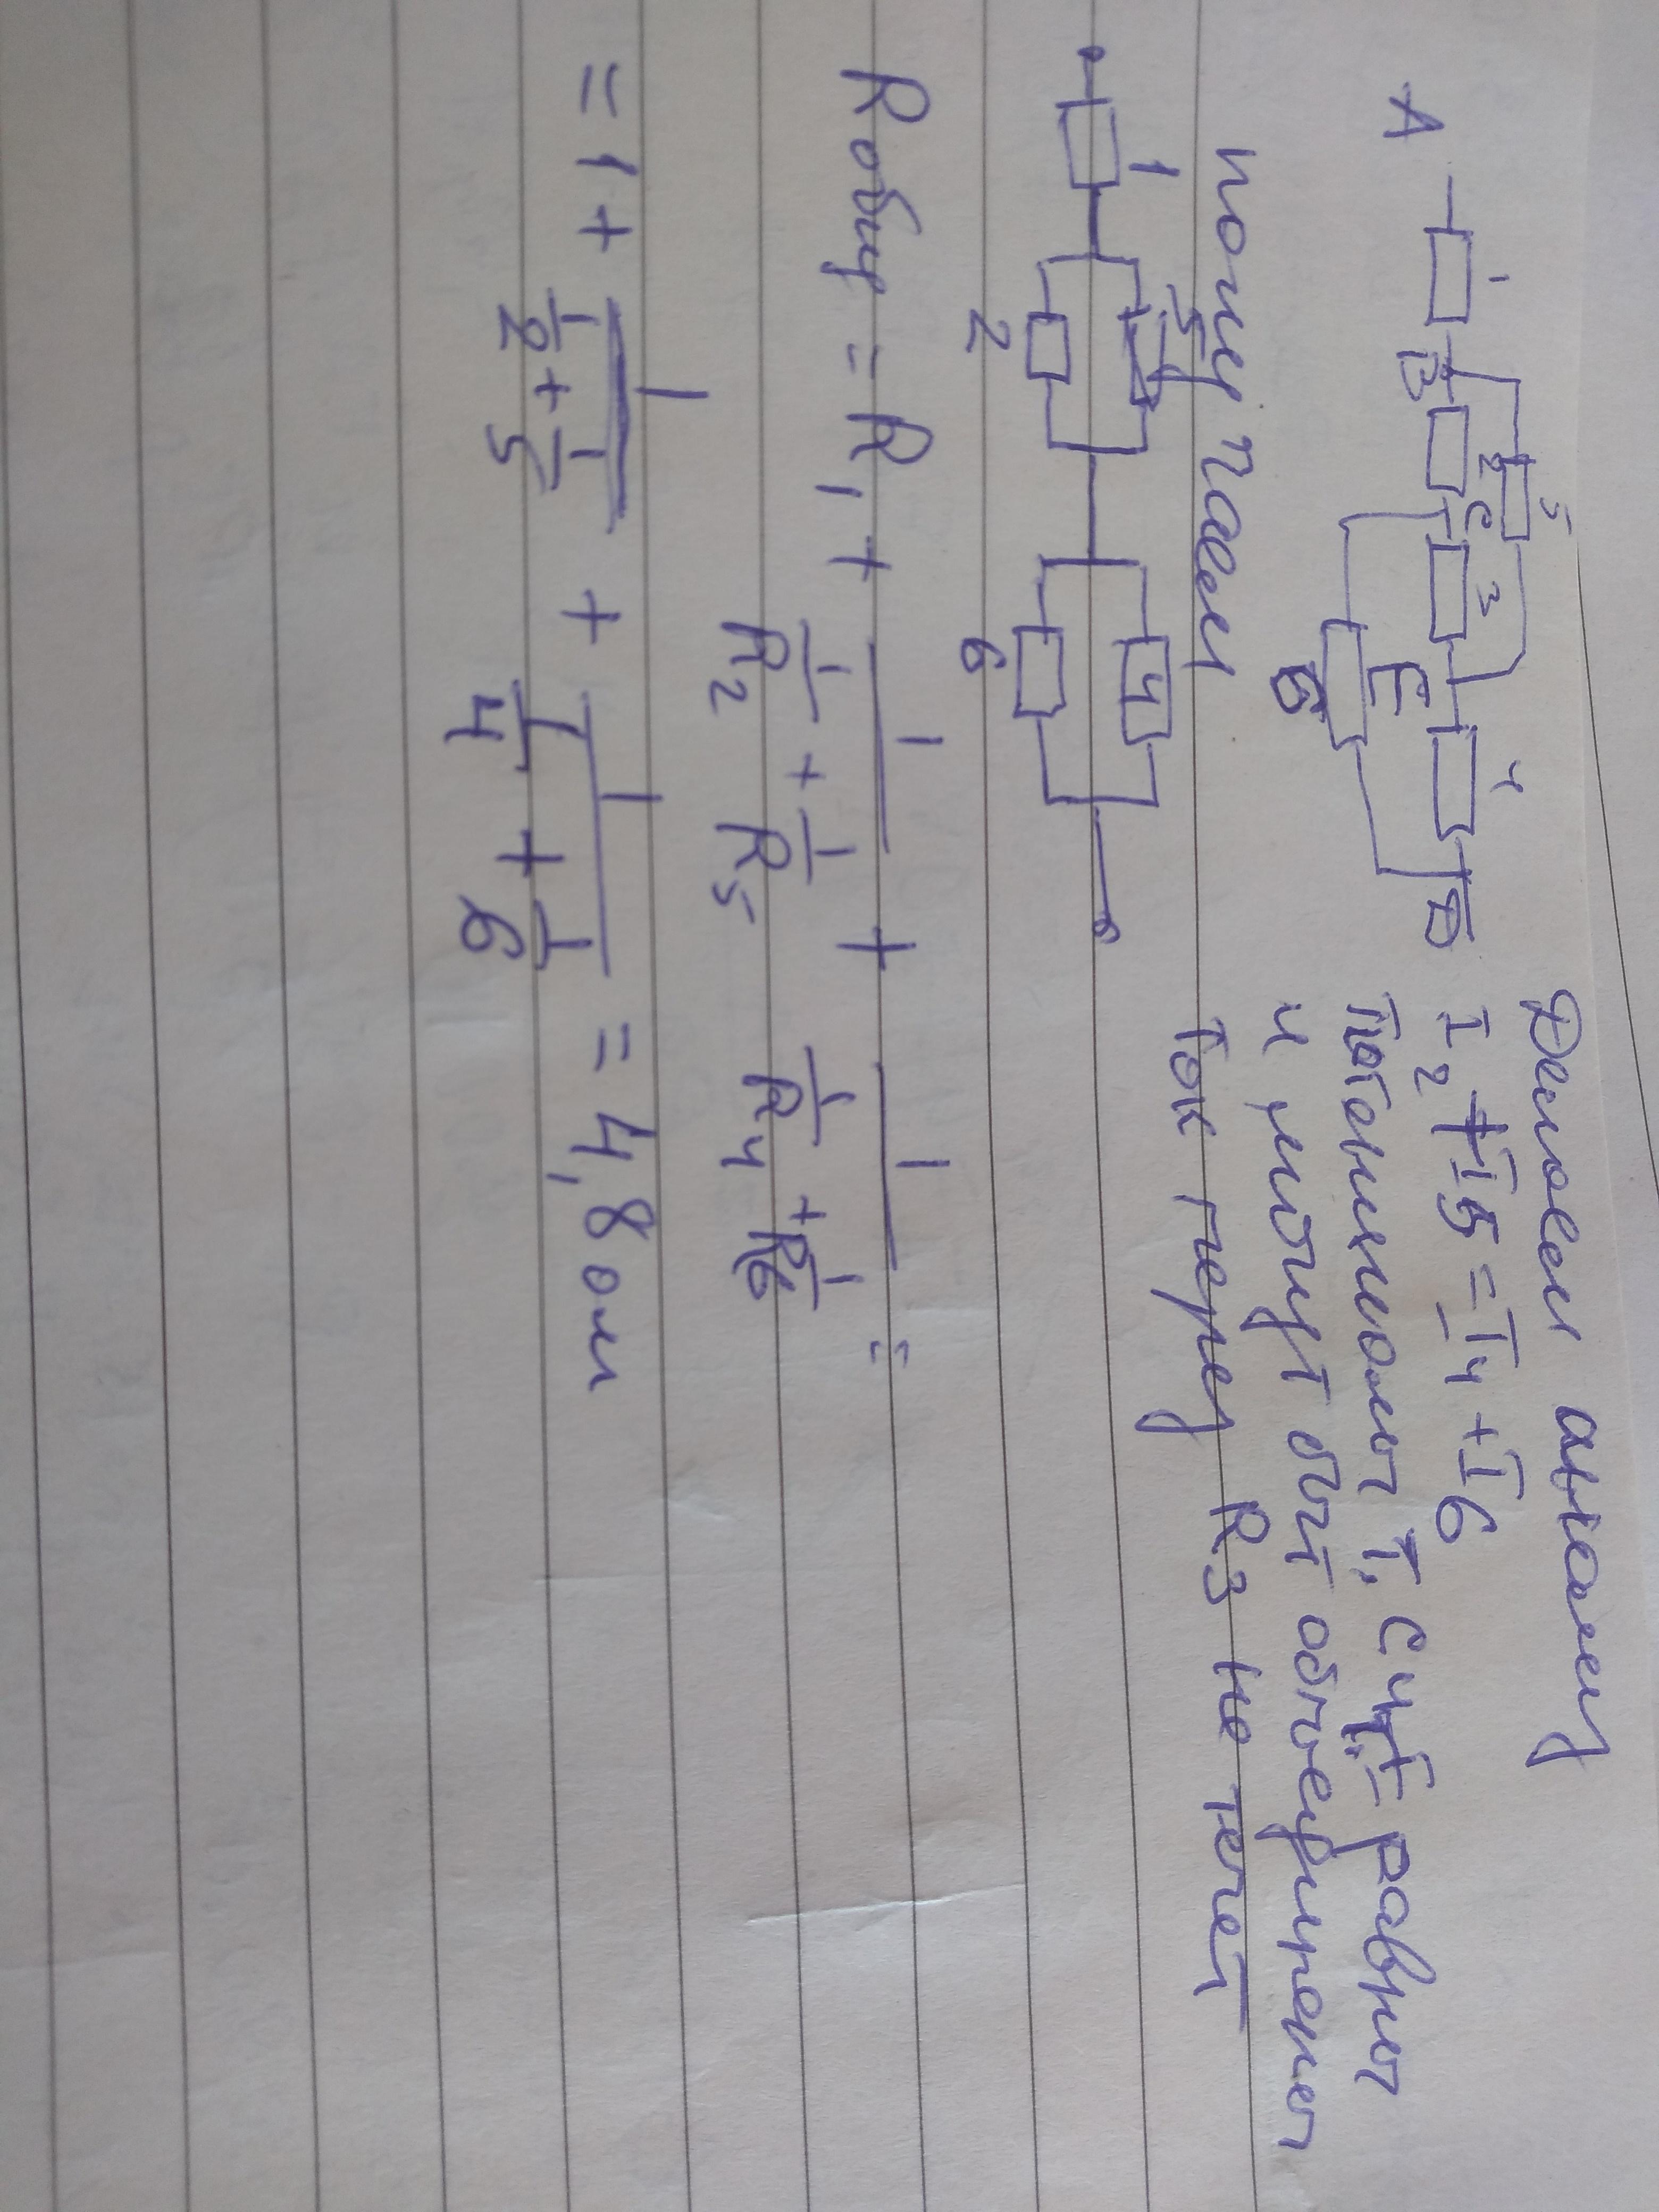 Делаем анализ
I2 + I5 = I4 + I6
потенциалы т. C и т. E равны
и могут быт объединены
ток через R3 не течёт
A 1 B 2 C 3 E 4 D
5
6
получаем
1 5 2 4 6
Rобщ = R1 + 1/(1/R2 + 1/R5) + 1/(1/R4 + 1/R6) =
= 1 + 1/(1/2 + 1/5) + 1/(1/4 + 1/6) = 4,8 ом